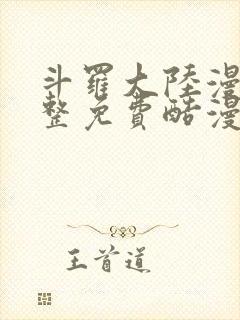 斗羅大陸漫
整免費酷漫
王首道